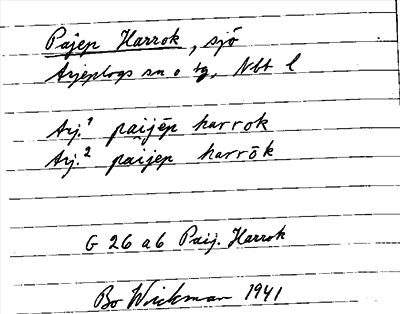 Pajep Harrok, sjö
Arjeplogs sn o tg, Nbt l
Arj.¹ paijēp harrok
Arj.² pāijep harrōk
G 26 a6 Paij. Harrok
Bo Wickman 1941